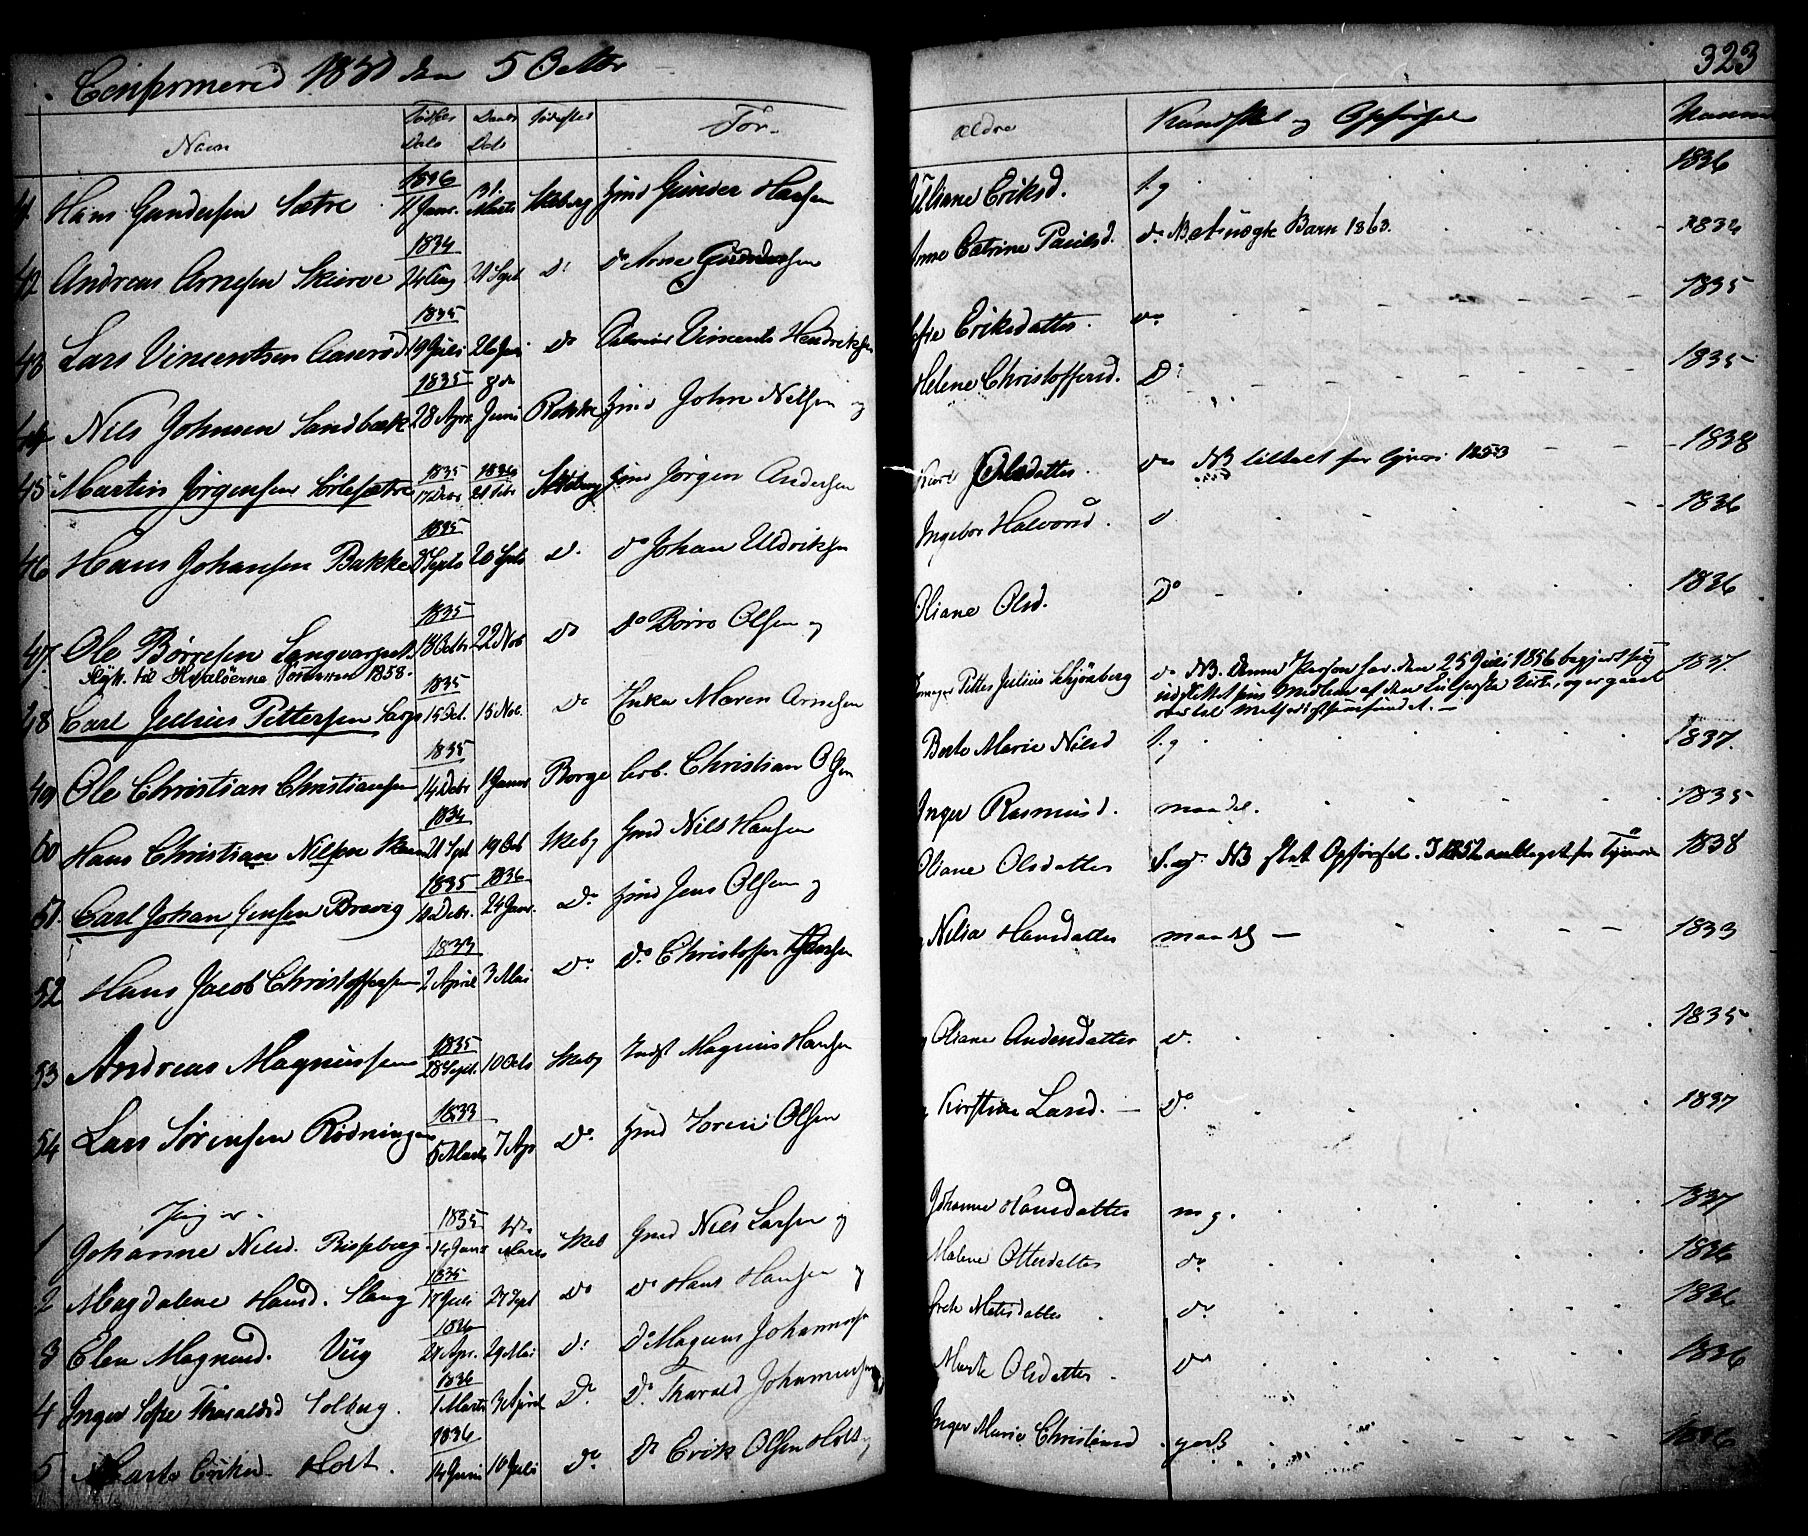 Confirmered 185 den 5 Octbr
323
Navn Fødsels Dato Daabs Dato Fødested For- ældre Kundskab og Opførsel Vaccin
41 Hans Gundersen Sætre 1836 11 Janr. 31 Marts Skeberg Gmd Gunder Hansen Juliane Eriksd. t. g 1836
42 Andreas Arnesen Skierve 1834 24 Aug 21 Sept Do Do Arne Gundersen Anne Catrine Paulsd. do NB. Barn 1863. 1834
43 Lars Vincentsen Aaserød 1835 19 Juli 26 Do Vincents Hendriksen Eriksdatter. do 1835
44 Nils Johnsen Sandbæk 1835 28 Apr. Juni Rokke Gmd John Nilsen og Helene Christoffersd. Do 1835
45 Martin Jørgensen Sørlesætre 1835 17 Debr 1836 21 Febr Skeberg Gmd Jørgen Andersen Olsdatter. do NB tiltalt for Tyveri 1853 1838
46 Hans Johansen Bakke 1835 Septb 20 Septb Do Do Johan Uldriksen Ingebor Halvorsd. do 1836
47 Ole Børresen Langvarpet 1835 18 Octbr 22 Nov Do Do Børre Olsen og Oliane Olsd. Do 1836
Flytt. til Hvaløerne 1858.
48 Carl Julius Pettersen Sarp 1835 15 Oct. 15 Nov. Do Enke Maren Arnesen Petter Julius Schjønberg do NB. Denne Person har den 25 Juli 1856 begjert sig
udslettet som Medlem af den Lutherske Kirke, og er gaaet
over til Methodistsamfundet. 1837.
49 Ole Christian Christiansen 1835 14 Debr 1 Janr Borge Christian Olsen Berte Marie Nilsd t. g 1837.
50 Hans Christian Nilsen 1834 21 Sept 19 Oct Skeby Gmd Nils Hansen Inger Rasmusd. maadel. 1835
51. Carl Johan Jensen Brevig 1835 10 Debr. 1836 24 Janr. Do Gmd Jens Olsen og Oliane Olsdatter NB slet Opførsel. I 1852 anklaget for Tyveri 1838
52 Hans Jacob Christoffersen 1833 2 April 3 Mai Do Do Christoffer Hansen og Nilia Hansdatter maadel 1833
53 Andreas Magnussen 1835 28 Sept. 10 Octb Skeby Indst Magnus Hansen og Oliane Andersdatter do 1835
54 Lars Sørensen Rødningen 1833 5 Marts 7 Apr Do Gmd Sören Olsen og Kirstine Larsd. Do 1837
Piger.
1 Johanne Nilsd. Bisseberg 1835 14 Janr Marts Skeb Gmd Nils Larsen og Johanne Hansdatter m g. 1837
2 Magdalene Hansd. Slang 1835 17 Juli 27 Sept Do Do Hans Hansen og Malene Ottersdatter do 1836
3 Elen Magnusd. Viig 1836 21 Apr. 29 Mai Do Do Magnus Johannesen Matisdatter do 1836
4 Inger Sofie Tharaldsd Solberg. 1836 1 Marts 3 April Do Do Tharald Johannesen Marte Olsdatter. do 1836
5 Marte Eriksd Holt. 1836 14 Juni 10 Juli Do Do Erik Olsen Holt og Inger Marie Christensd. godt 1836